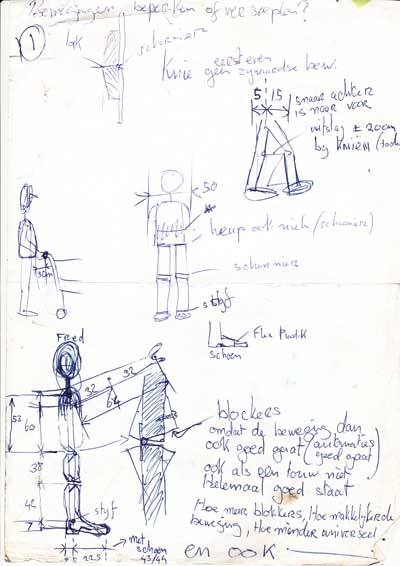 Bewegingen beperken of veel soepelen?
1
bot
scharnier
eerst even
Knie geen zijwaartse bew.
5 15
snaar achter
is naar voor
uitslag ± 20 cm
bij Knieën
50
heup ook niet (scharnier)
scharnier
stijf
Flex Plastik
schoen
Fred
32 32
64
53
60
38
42
7
stijf
5 22,5
met
schoen
43/44
blockers
omdat de beweging dan
ook goed gaat (automaties
goed gaat)
ook als een touw niet
Helemaal goed staat
Hoe meer blokkers, Hoe makkelijker de
beweging, Hoe minder universeel
en ook